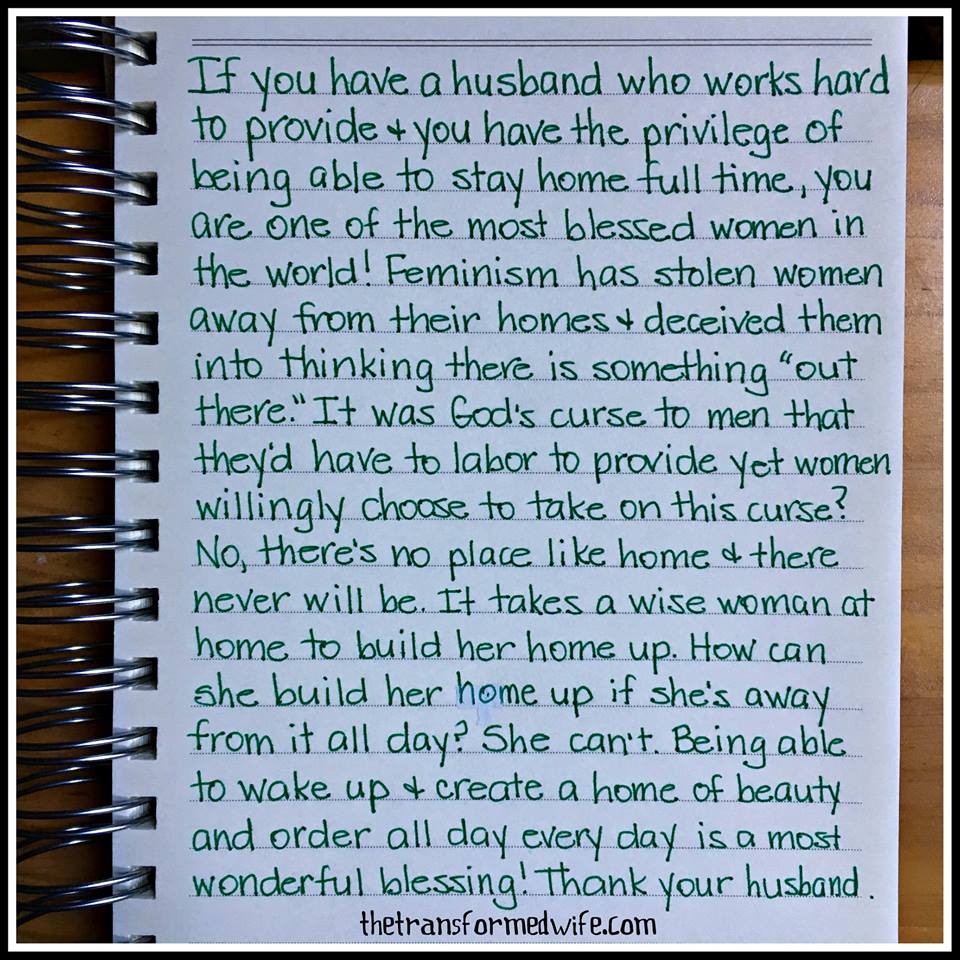 If you have a husband who works hard
to provide & you have the privilege of
being able to stay home full time, you
are one of the most blessed women in
the world! Feminism has stolen women
away from their homes & deceived them
into thinking there is something "out
there." It was God's curse to men that
they'd have to labor to provide yet women
willingly choose to take on this curse?
No, there's no place like home & there
never will be. It takes a wise woman at
home to build her home up. How can
she build her home up if she's away
from it all day? She can't. Being able
to wake up & create a home of beauty
and order all day every day is a most
wonderful blessing! Thank your husband.
thetransformedwife.com